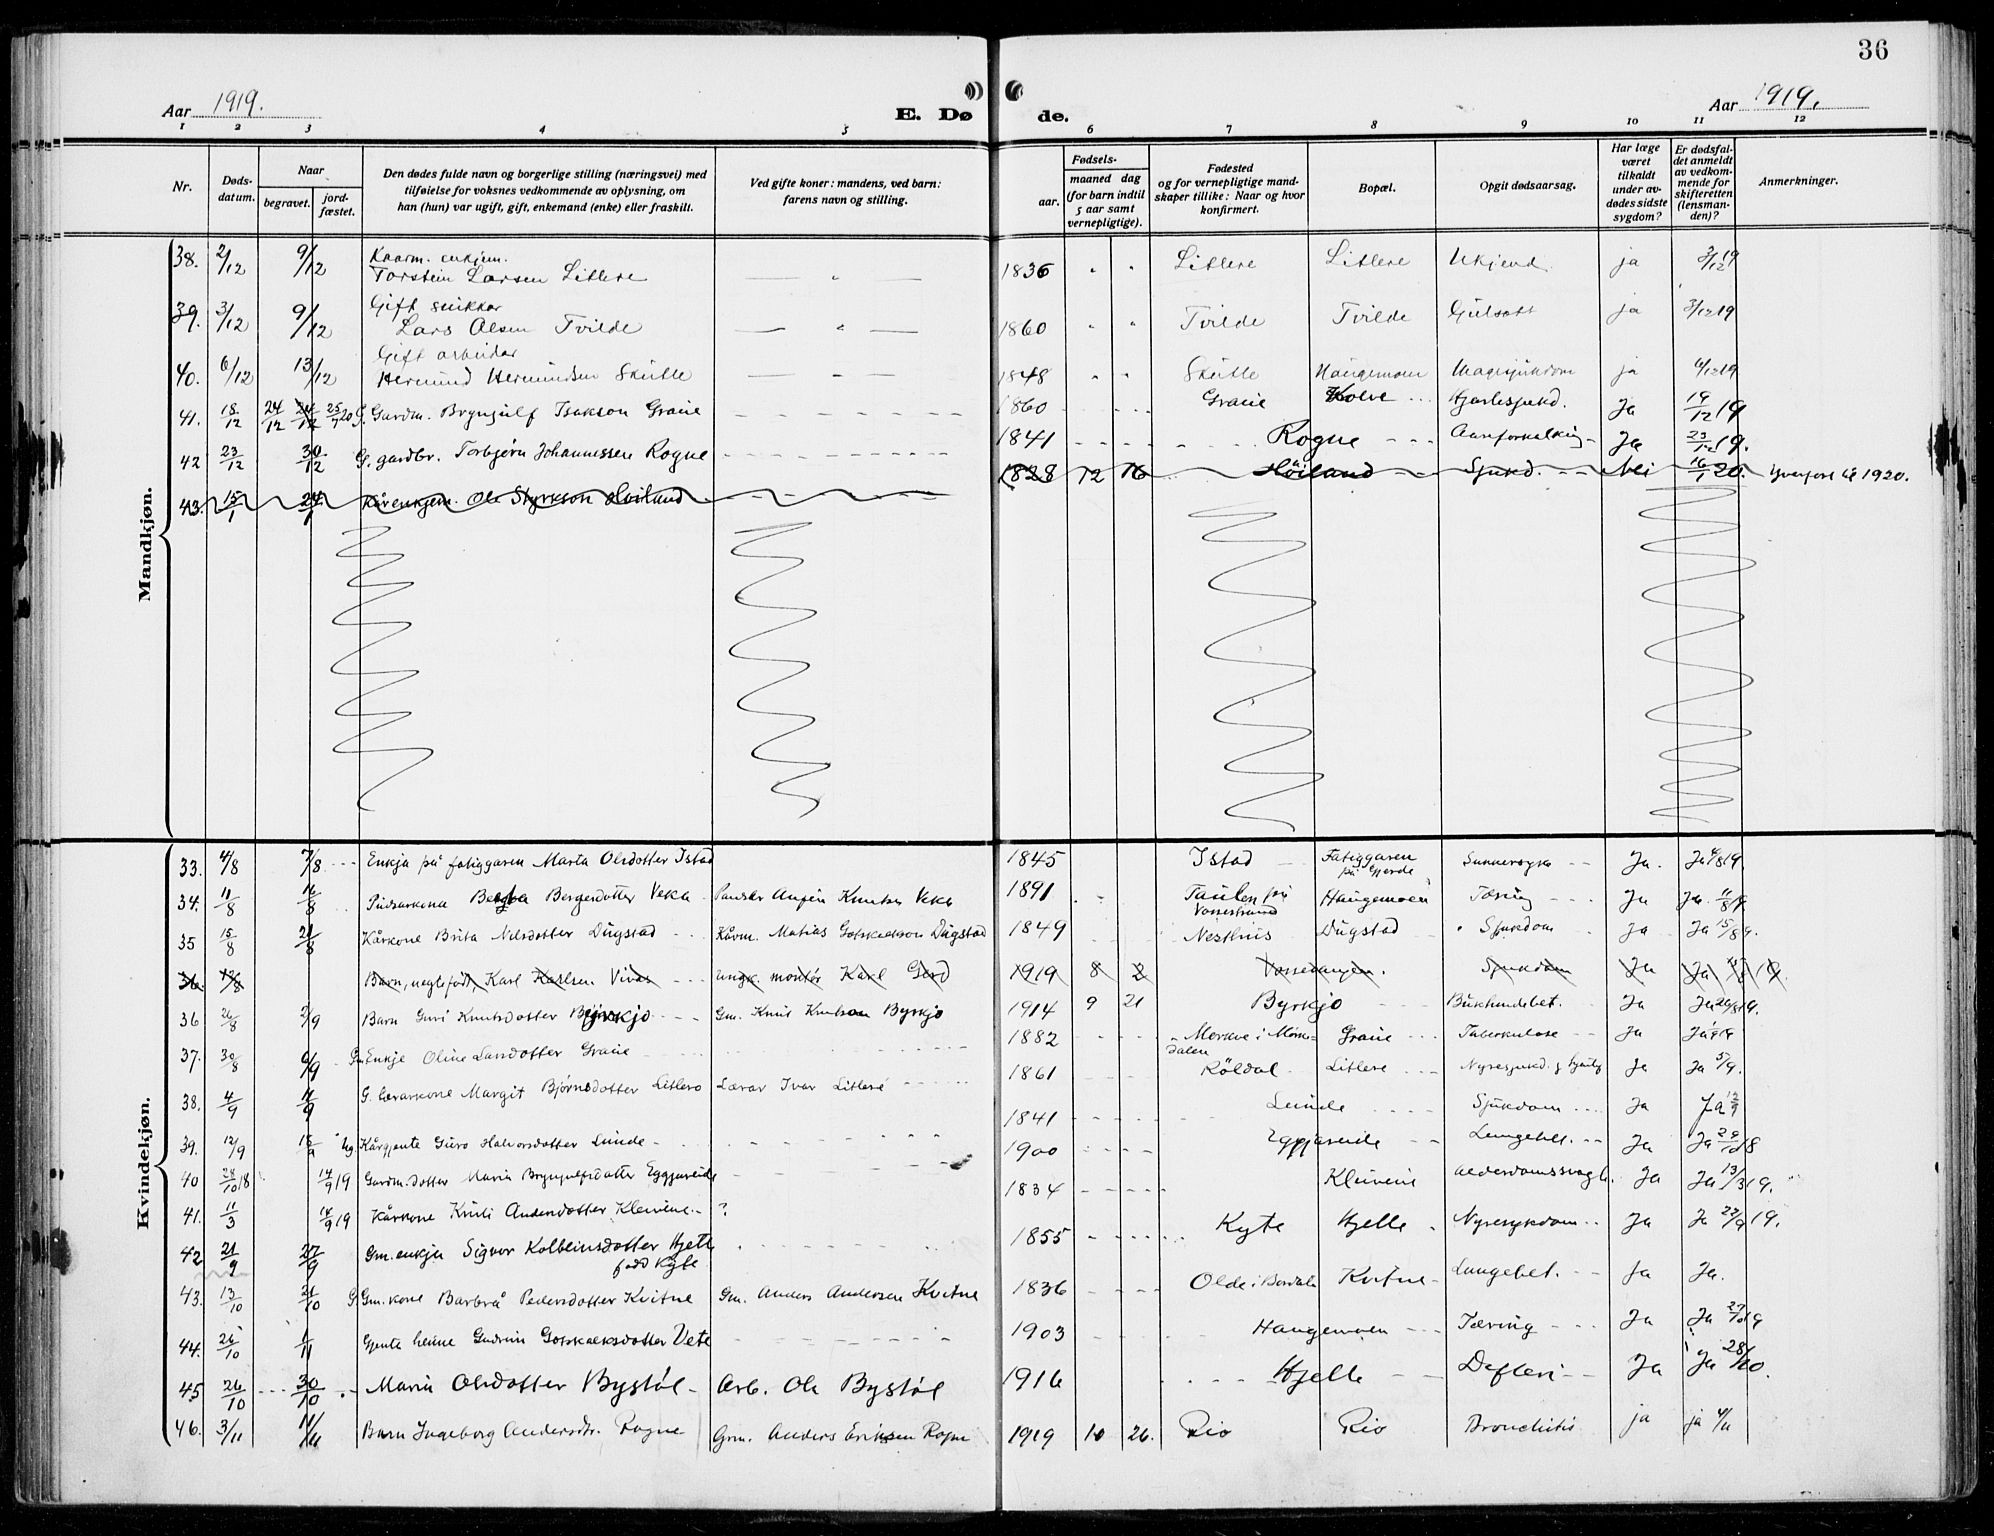 36
Aar 1919.
E. Døde.
Aar 1919.
1 2 3 4 5 6 7 8 9 10 11 12
Nr.
Døds-
datum.
Naar
begravet.
jord-
fæstet.
Den dødes fulde navn og borgerlige stilling (næringsvei) med
tilføielse for voksnes vedkommende av oplysning, om
han (hun) var ugift, gift, enkemand (enke) eller fraskilt.
Ved gifte koner: mandens, ved barn:
farens navn og stilling.
Fødsels-
aar.
maaned dag
(for barn indtil
5 aar samt
vernepligtige).
Fødested
og for vernepligtige mand-
skaper tillike: Naar og hvor
konfirmert.
Bopæl.
Opgit dødsaarsag.
Har læge
været
tilkaldt
under av-
dødes sidste
sygdom?
Er dødsfal-
det anmeldt
av vedkom-
mende for
skifteretten
(lensman-
den)?
Anmerkninger.
Mandkjøn.
38. 2/12 9/12 Kaarm. enkjem. Torstein Larsen Litlere 1836 Litlere Litlere Ukjend ja 3/12 19
39. 3/12 9/12 Gift snikkar Lars Olsen Tvilde 1860 Tvilde Tvilde Gulsott ja 3/12 19
40. 6/12 13/12 Gift arbeidar Hermund Hermundsen Skutle 1848 Skutle Haugemoen Magesjukdom ja 6/12 19
41. 18/12 24/12 G. Gardm. Brynjulf Isakson Graue 1860 Graue Kolve Hjartesjukd. Ja 19/12 19
42 23/12 30/12 G. gardbr. Torbjørn Johannessen Rogne 1841 Rogne Aareforkalking Ja 23/12 19.
43. 15/1 24/1 Kårenkjem. Ole Styrkson Høiland 1828 12 16 Høiland Sjukd. Nei 16/1 20. Yverført til 1920.
Kvindekjøn.
33. 4/8 7/8 Enkja på fatiggaren Marta Olsdotter Istad 1845 Istad Fatiggaren på Gjerde Sukkersyke Ja. Ja 4/8 19.
34. 11/8 16/8 Bergerdotter Veka Anfin Knutsen Veka 1891 Taulen på Vossestrand Haugemoen Tæring Ja Ja. 11/8 19
35 15/8 21/8 Kårkone Brita Nilsdotter Dugstad Kårm. Matias Dugstad 1849 Nesthus Dugstad Sjukdom Ja Ja 15/8 9.
36. Barn, uegtefødt, Karl Karlsen Vivås ungk. montør Karl 1919 8 2 Vossevangen. Sjukdom Ja Ja
36 26/8 2/9 Barn Guri Knutsdotter Byrkjo Gm. Knut Knutson Byrkjo 1914 9 21 Byrkjo Bukhindebet. Ja Ja 26/8 19.
37. 30/8 6/9 Gm Enkje Oline Larsdotter Graue 1882 Mørkve i Mørkedalen Graue Tuberkulose Ja Ja
38. 4/9 11/9 G. lærarkone Margit Bjørnsdotter Litlere Lærar Ivar Litlere 1861 Røldal Litlere Nyresjukd. Ja Ja 5/9.
39. 12/9 Ug. Kårgjente Guro Halvorsdotter Lunde 1841 Lunde Sjukdom Ja Ja 12/9
40 28/10 18 14/9 19 Gardm.dotter Maria Brynjulfsdotter Eggjareide 1900 Eggjareide Lungebet. Ja Ja
41. 11/3 14/9 19 Kårkone Kristi Andersdotter Kleivene ? 1834 Kleivene Alderdomssvagh. Ja Ja 13/3 19.
42 21/9 27/9 Gm. enkja Sigvor Kolbeinsdotter Hjelle fødd Kyte 1855 Kyte Hjelle Nyresykdom Ja Ja 22/9 19.
43. 13/10 21/10 G. Gm. kone Barbrå Pedersdotter Kvitne Gm. Anders Andersen Kvitne 1836 Olde i Bordalen Kvitne Lungebet. Ja Ja.
44. 26/10 1/11 Gjenta heime Gudrun Vete 1903 Haugemoen Tæring Ja Ja 27/10 19
45 26/10 30/10 Maria Olsdotter Bystøl Arb. Ole Bystøl 1916 Hjelle Defteri Ja Ja 28/10.
46. 3/11 11/11 Barn Ingeborg Andersdtr. Rogne Grm. Anders Eriksen Rogne 1919 10 26. Rio Rio Bronchitis ja ja 4/11